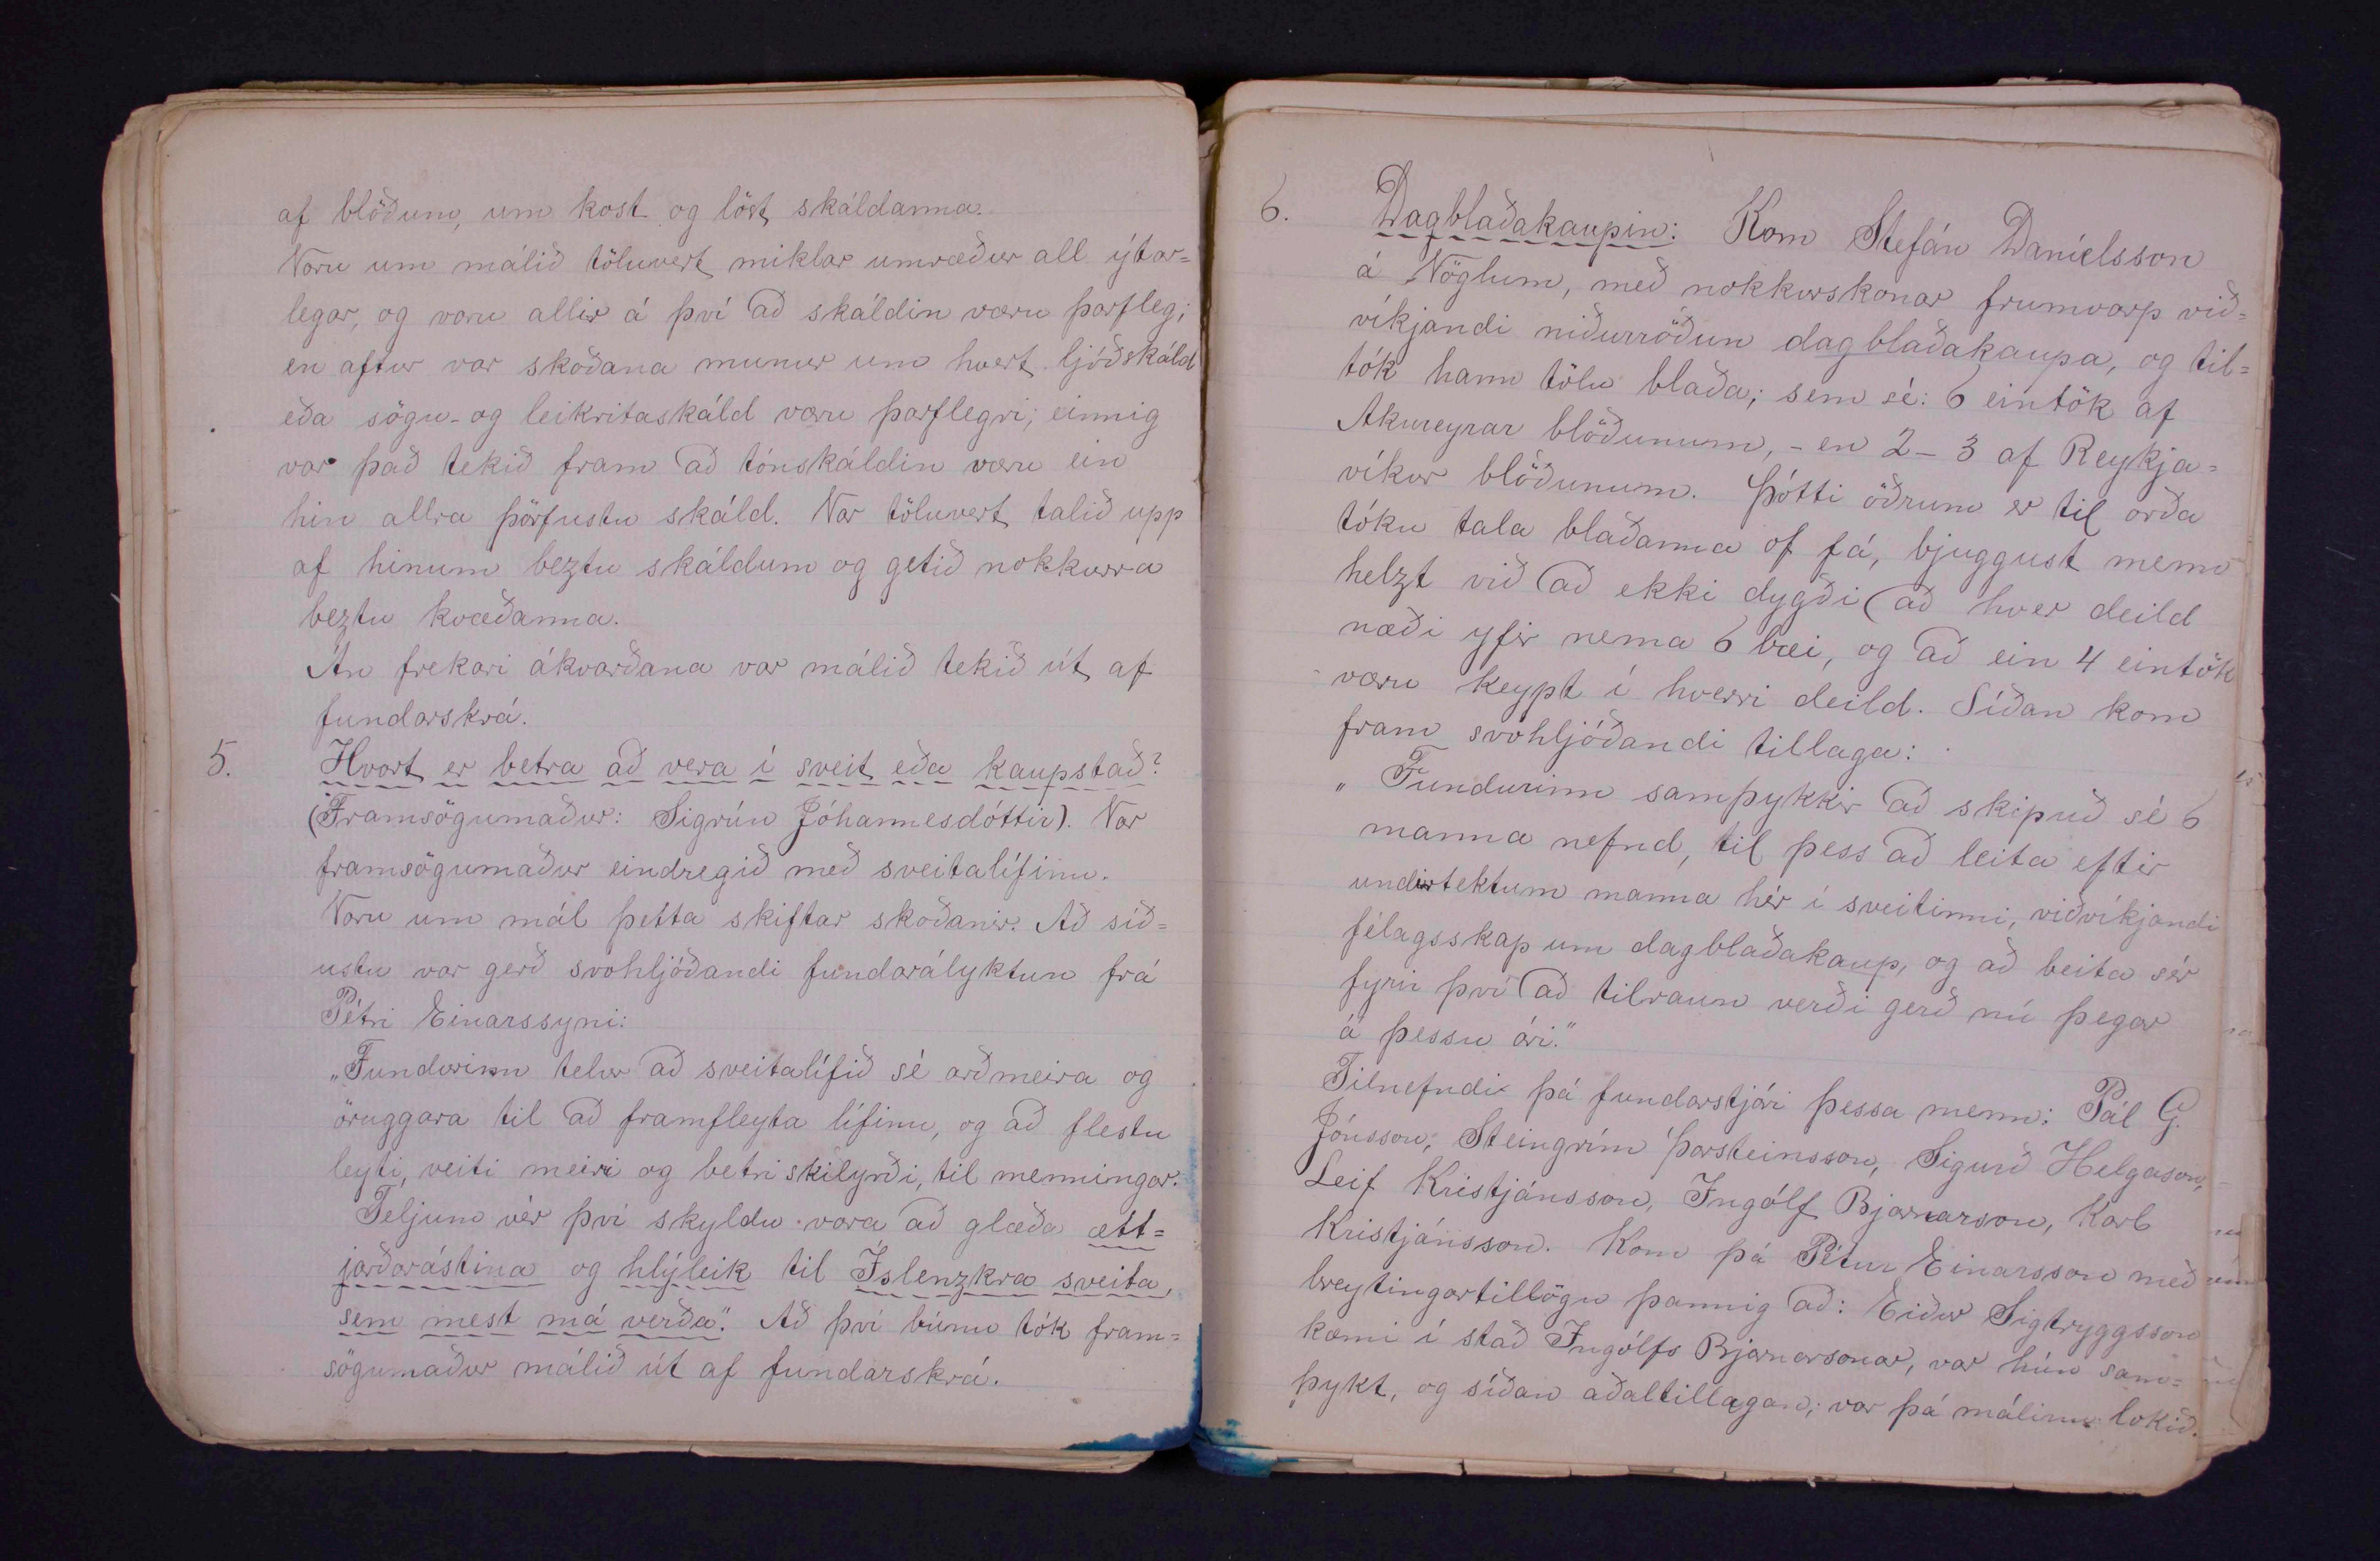 af blöðum, um kost og löst skáldanna.
Voru um málið töluvert miklar umræður all ýtar=
legar, og voru allir á því að skáldin væru þarfleg;
en aftur var skoðana munur um hvert ljóðskáld
eða sögu- og leikritaskáld væru þarflegri; einnig
var það tekið fram að tónskáldin væru ein
hin allra þörfustu skáld. Var töluvert talið upp
af hinum beztu skáldum og getið nokkurra
beztu kvæðanna.
Án frekari ákvarðana var málið tekið út af
fundarskrá.
5. Hvort er betra að vera í sveit eða kaupstað?
(Framsögumaður: Sigrún Jóhannesdóttir). Var
framsögumaður eindregið með sveitalífinu.
Voru um mál þetta skiftar skoðanir. Að síð=
ustu var gerð svohljóðandi fundarályktun frá
Pétri Einarssyni:
„Fundurinn telur að sveitalífið sé arðmeira og
öruggara til að framfleyta lífinu, og að flestu
leyti, veiti meiri og betri skilyrði, til menningar.
Teljum vér því skyldu vora að glæða ætt=
jarðarástina og hlýleik til Íslenzkra sveita,
sem mest má verða". Að því búnu tók fram=
sögumaður málið út af fundarskrá.
6. Dagblaðakaupin: Kom Stefán Daníelsson
á Vöglum, með nokkurskonar frumvarp við=
víkjandi niðurröðun dagblaðakaupa, og til=
tók hann tölu blaða; sem sé: 6 eintök af
Akureyrar blöðunum, - en 2-3 af Reykja=
víkur blöðunum. Þótti öðrum er til orða
tóku tala blaðanna of fá, bjuggust menn
helzt við að ekki dygði að hver deild
næði yfir nema 6 bæi, og að ein 4 eintök
væru keypt í hverri deild. Síðan kom
fram svohljóðandi tillaga:
„Fundurinn samþykkir að skipuð sé 6
manna nefnd, til þess að leita eftir
undirtektum manna hér í sveitinni, viðvíkjandi
félagsskap um dagblaðakaup, og að beita sér
fyrir því að tilraun verði gerð nú þegar
á þessu ári."
Tilnefndi þá fundarstjóri þessa menn: Pál G.
Jónsson, Steingrím Þorsteinsson, Sigurð Helgason,
Leif Kristjánsson, Ingólf Bjarnarson, Karl
Kristjánsson. Kom þá Pétur Einarsson með
breytingartillögu þannig að: Eiður Sigtryggsson
kæmi í stað Ingólfs Bjarnarsonar, var hún sam=
þykt, og síðan aðaltillagan; var þá málinu lokið.